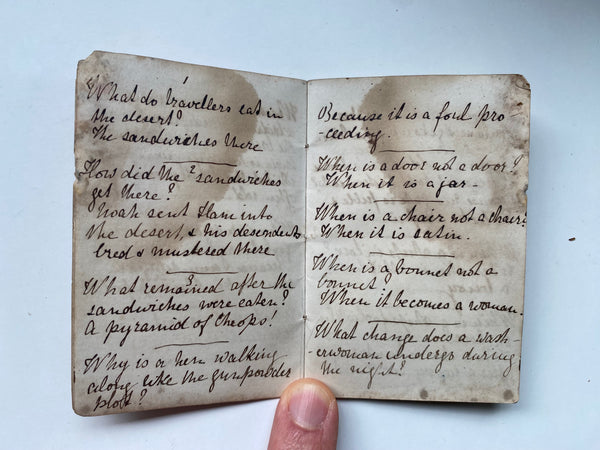 1
What do travellers eat in
the desert?
The sandwiches there
How did the 2 sandwiches
get there?
Noah sent Ham into
the desert, & his desendents
bred & mustered there
3
What remained after the
sandwiches were eaten?
A pyramid of Cheops!
Why is a hen walking
along like the gunpowder
plot?
Because it is a foul pro-
-ceeding.
When is a door not a door?
When it is a jar-
When is a chair not a chair?
When it is satin.
When is a bonnet not a
bonnet?
When it becomes a woman.
What change does a wash-
erwoman undergo during
the night?